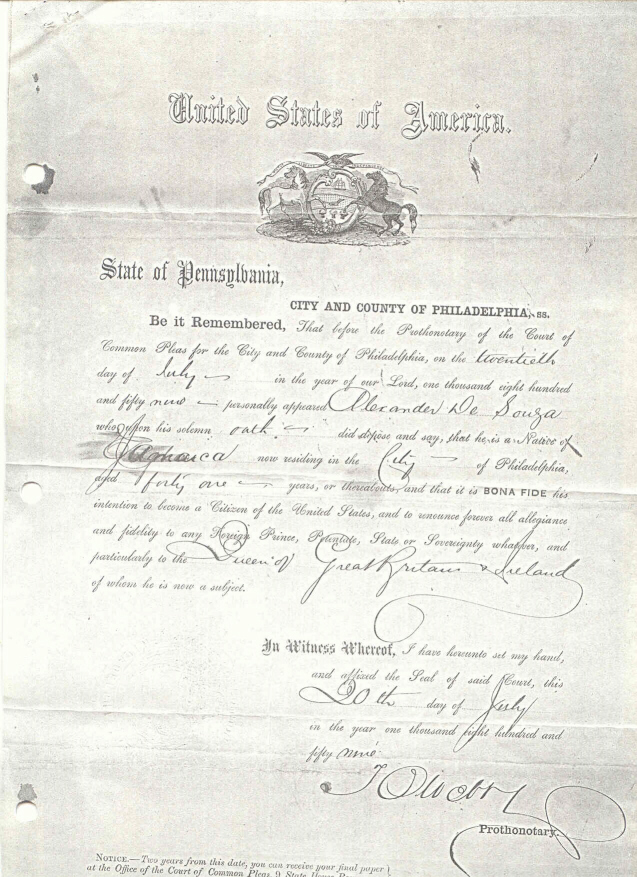 United States of America.
State of Pennsylvania,
CITY AND COUNTY OF PHILADELPHIA, SS.
Be it Remembered, That before the Prothonotary of the Court of
Common Pleas for the City and County of Philadelphia, on the twentieth
day of July in the year of our Lord, one thousand eight hundred
and fifty nine personally appeared Alexander De Souza
who upon his solemn oath did depose and say, that he is a Native of
Jamaica now residing in the City of Philadelphia,
aged forty one years, or thereabouts, and that it is BONA FIDE his
intention to become a Citizen of the United States, and to renounce forever all allegiance
and fidelity to any Foreign Prince, Potentate, State or Sovereignty whatever, and
particularly to the Queen of Great Britain & Ireland
of whom he is now a subject.
In Witness Whereof, I have hereunto set my hand,
and affixed the Seal of said Court, this
20th day of July
in the year one thousand eight hundred and
fifty nine
Prothonotary.
NOTICE.—Two years from this date, you can receive your final paper
at the Office of the Court of Common Pleas, 9 State House